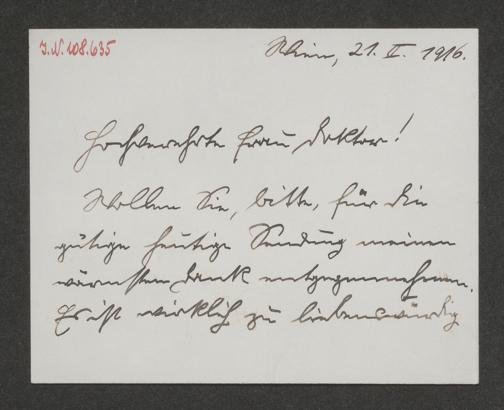 J.N. 108.635
Wien, 21. II. 1916.
Hochverehrte Frau Doktor!
Wollen Sie, bitte, für die
gütige heutige Sendung meinen
wärmsten Dank entgegennehmen.
Es ist wirklich zu liebenswürdig